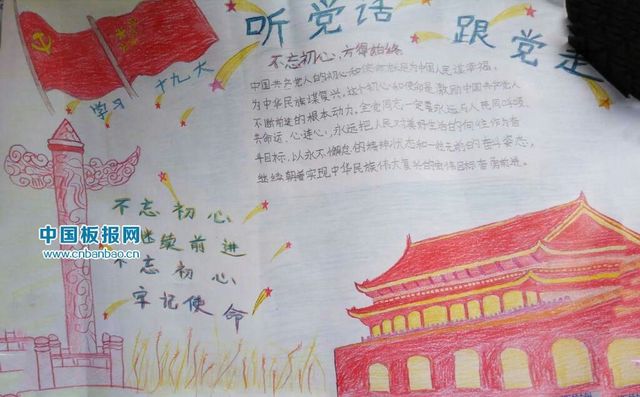 听党话
跟党走
学习
十九大
不忘初心,方得始终
中国共产党人的初心和使命就是为中国人民谋幸福,
为中华民族谋复兴。这个初心和使命是激励中国共产党人
不断前进的根本动力。全党同志一定要永远与人民同呼吸、
共命运、心连心,永远把人民对美好生活的向往作为奋
斗目标,以永不懈怠的精神状态和一往无前的奋斗姿态,
继续朝着实现中华民族伟大复兴的宏伟目标奋勇前进。
不忘初心
继续前进
不忘初心
牢记使命
中国板报网
www.cnbanbao.cn